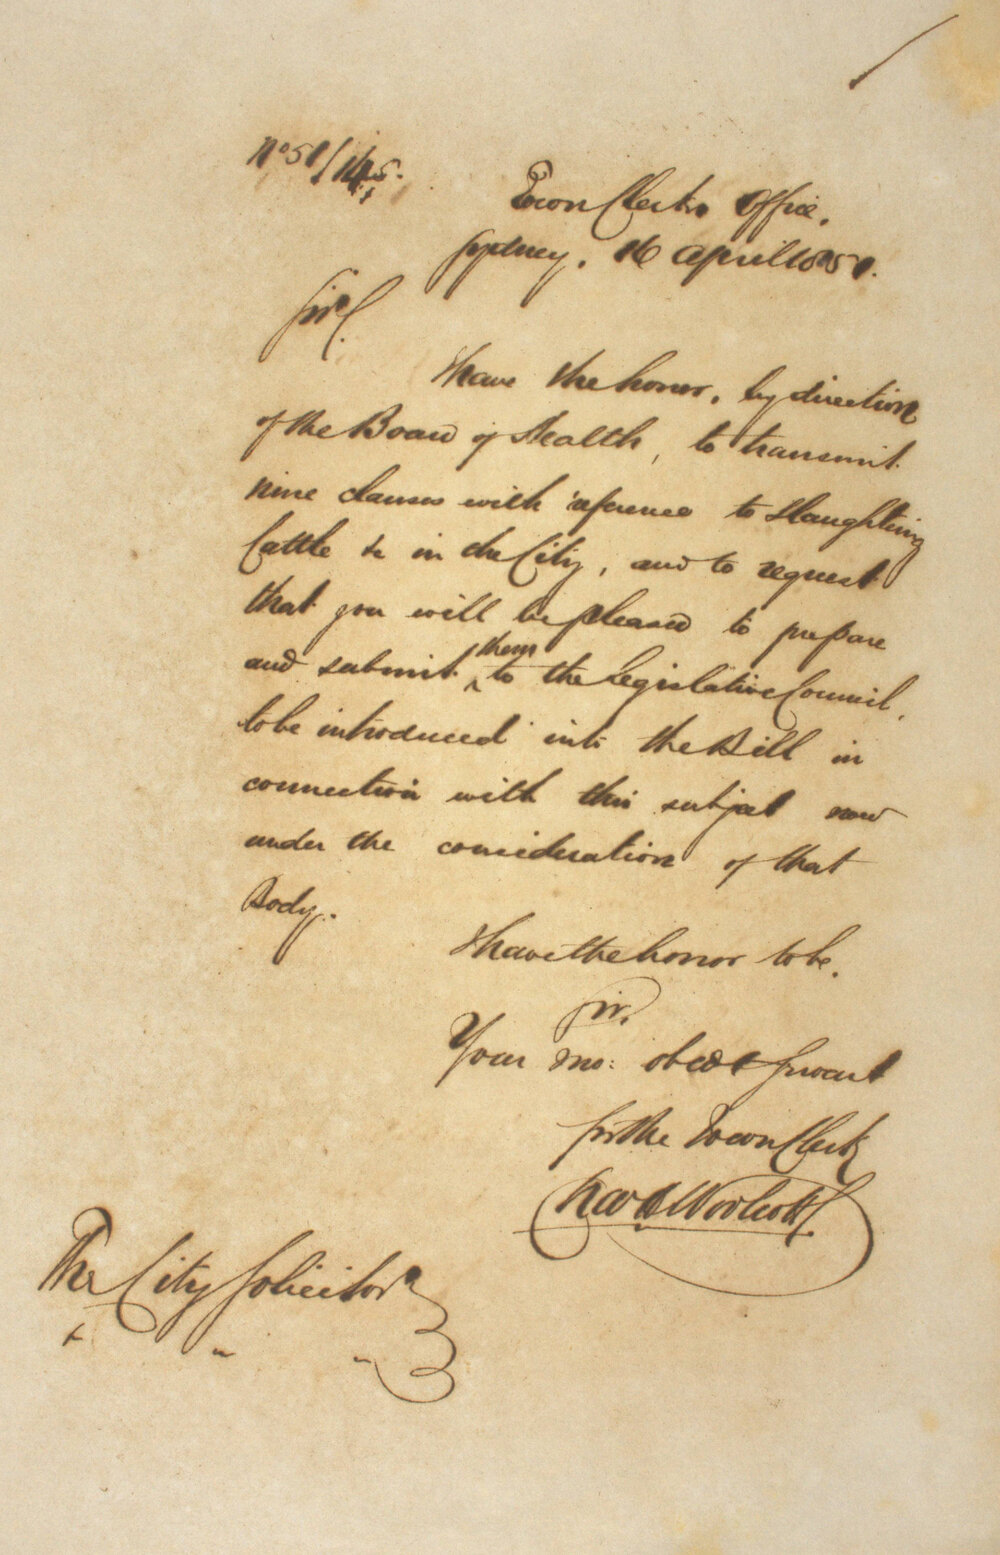 No 51/145.
Town Clerks Office.
Sydney. 16 April 1851.
Sir,
I have the honor, by direction
of the Board of Health, to transmit
nine clauses with reference to Slaughtering
Cattle &c in the City, and to request
that you will be pleased to prepare
and submit them to the Legislative Council,
to be introduced into the Bill in
connection with this subject now
under the consideration of that
Body.
I have the honor to be.
Sir,
Your mo: obedt Servant
for the Town Clerk
Woolcott
The City Solicitor